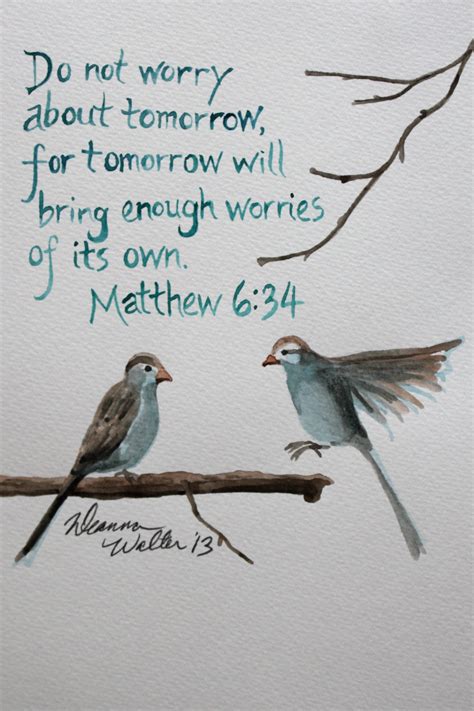 Do not worry
about tomorrow,
for tomorrow will
bring enough worries
of its own.
Matthew 6:34
Deanna
Walter '13